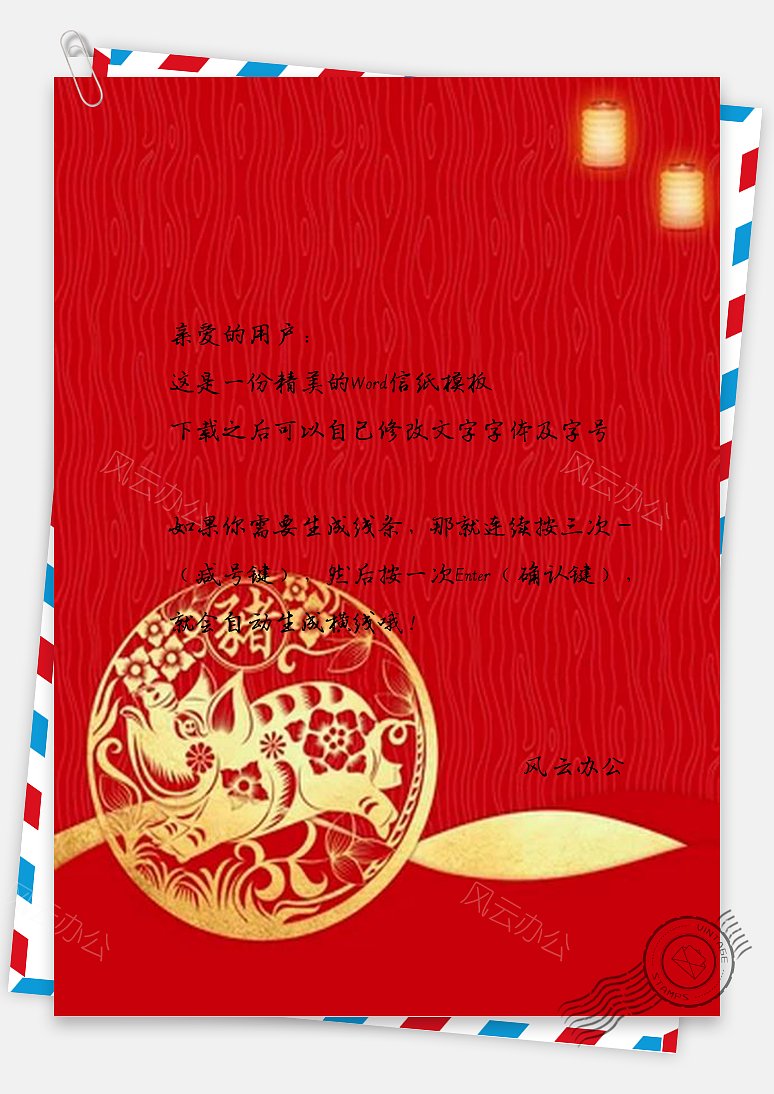 亲爱的用户：
这是一份精美的Word信纸模板
下载之后可以自己修改文字字体及字号
风云办公
风云办公
如果你需要生成线条，那就连续按三次－
（减号键），然后按一次Enter（确认键），
就会自动生成横线哦！
豬
风云办公
风云办公
风云办公
VINTAGE
STAMPS